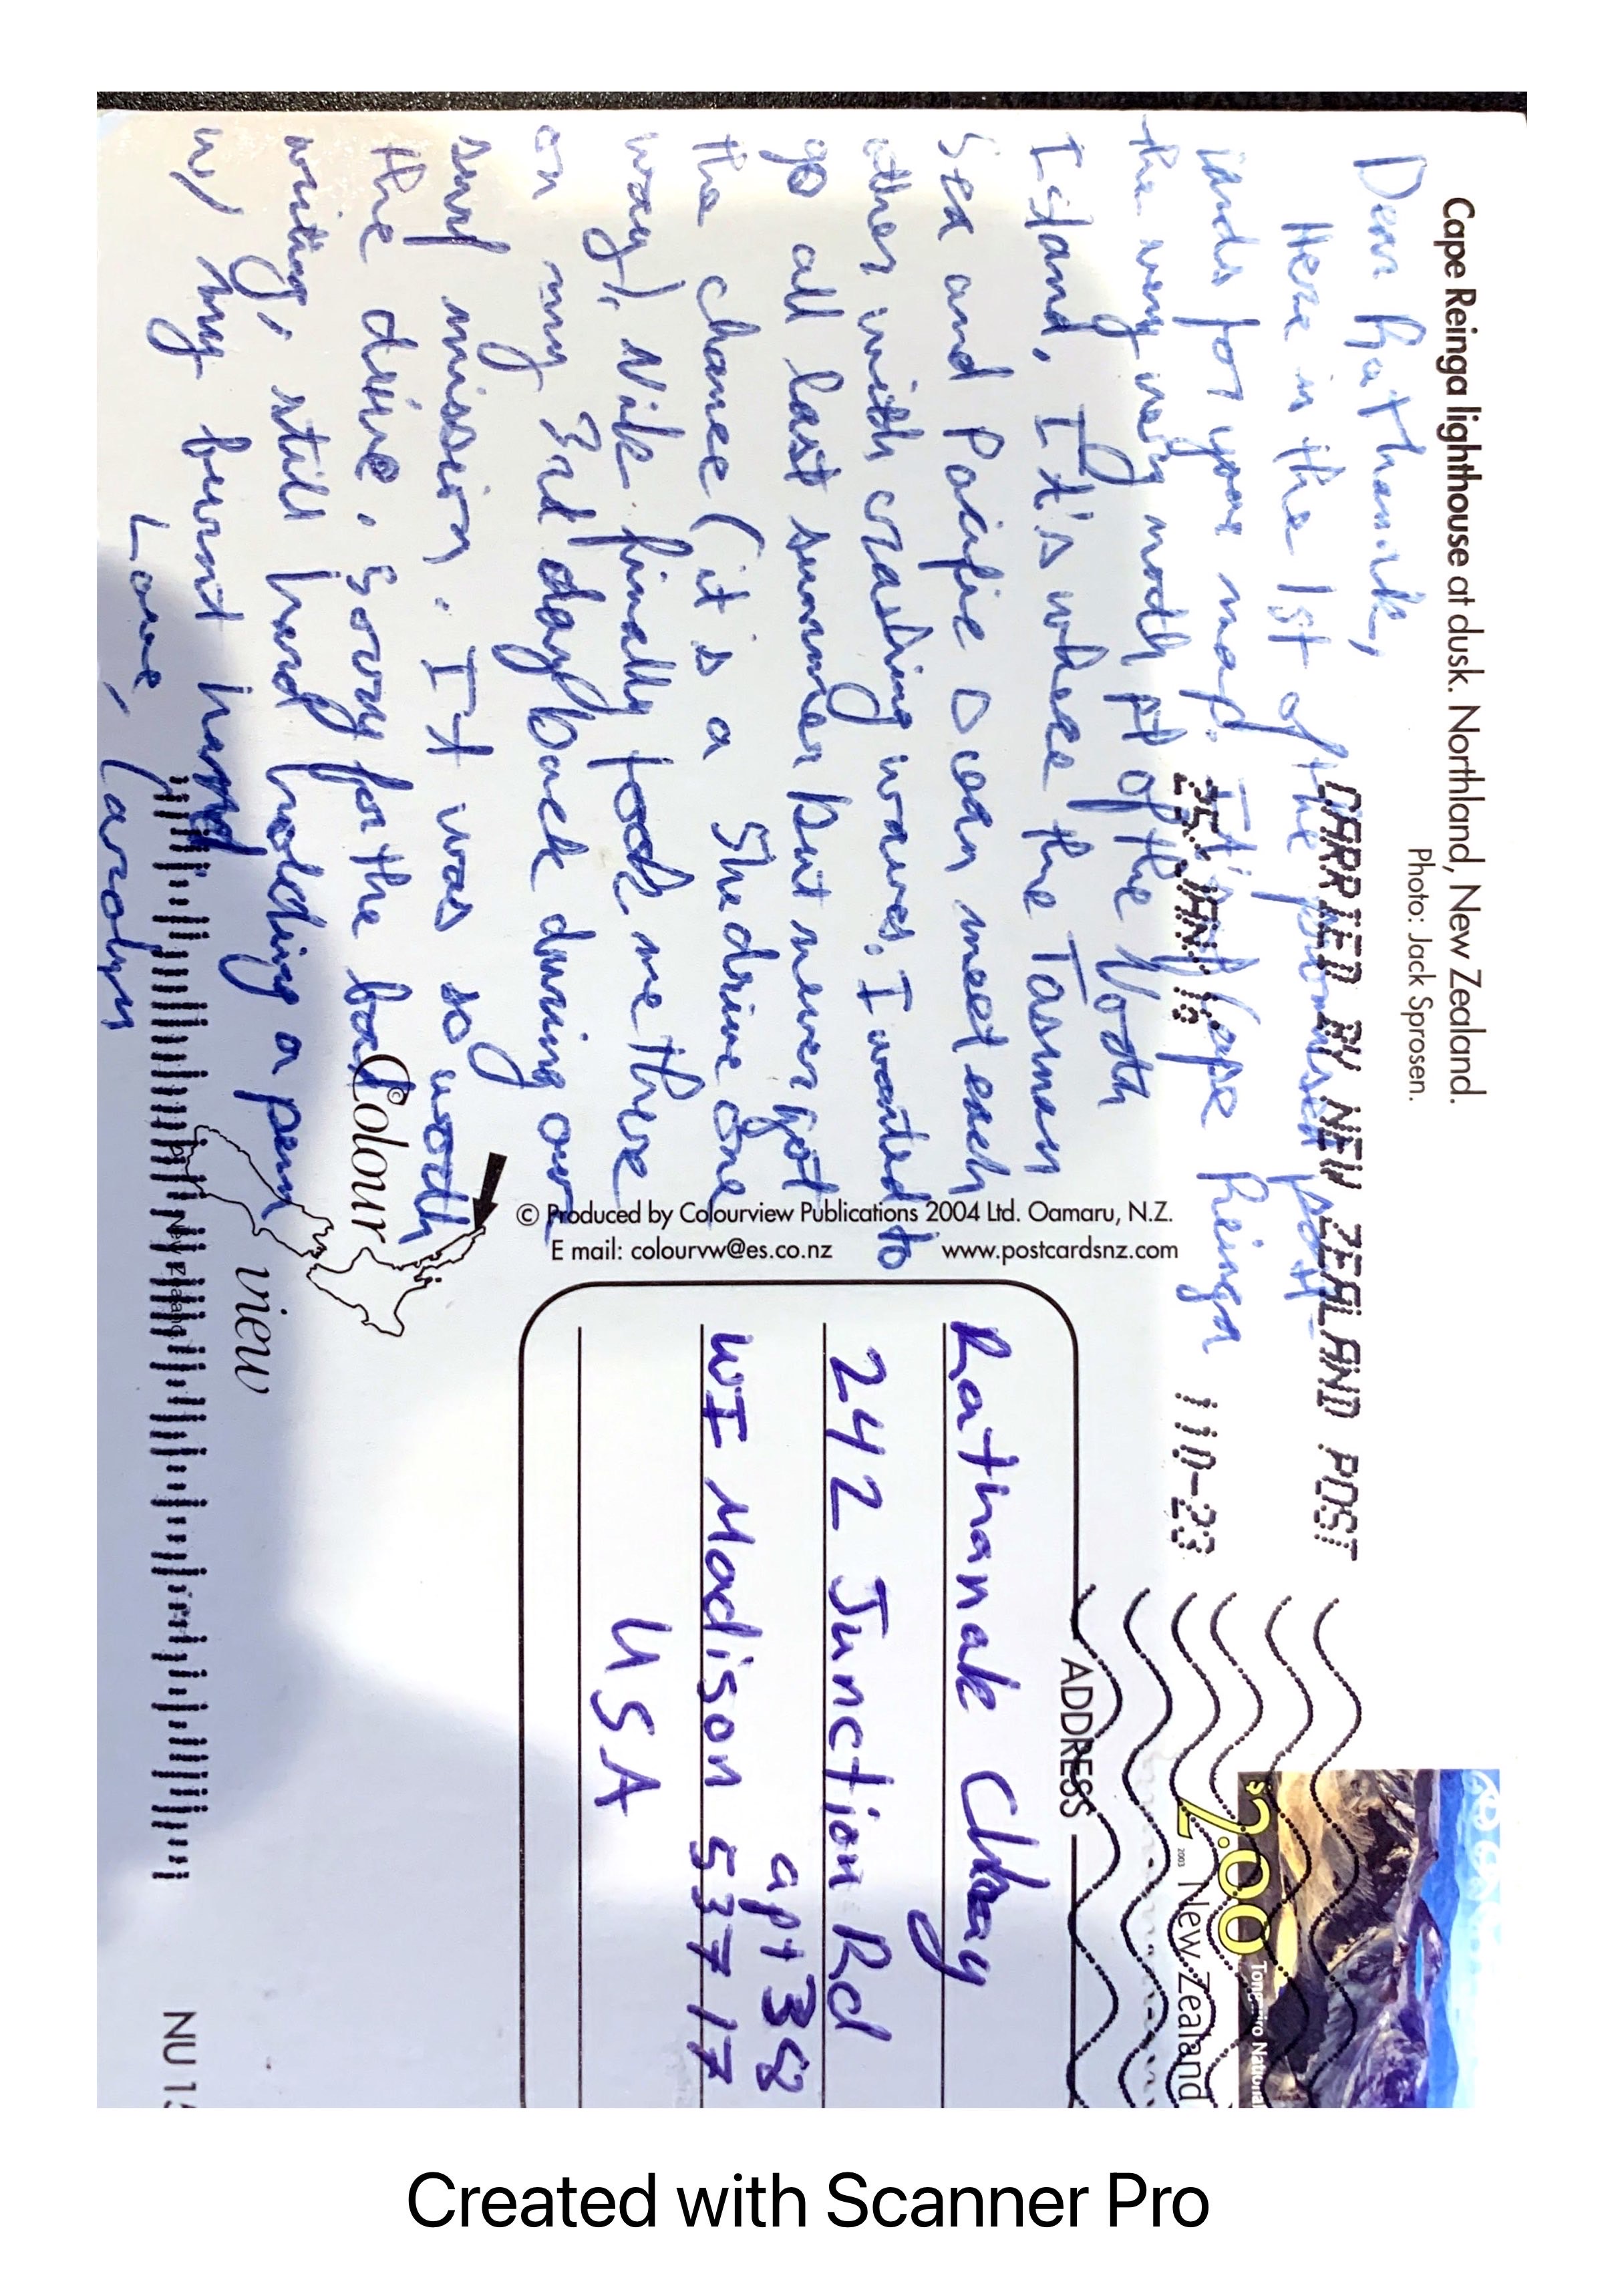 Cape Reinga lighthouse at dusk. Northland, New Zealand.
Photo: Jack Sprosen.
CARRIED BY NEW ZEALAND POST
25. JAN. 16
11D-23
Dear Rathanak,
Here is the 1st of the promised post-
cards for your map. It's of Cape Reinga
the very very north pt of the North
Island, It's where the Tasman
Sea and Pacific Ocean meet each
other with crashing waves. I wanted to
go all last summer but never got
the chance (it is a 5 hr drive one
way). Nik finally took me there
on my 3rd day back during our
surf mission. It was so worth
the drive. Sorry for the bad
writing, still hard holding a pen
w/ my burnt hand
Love,
Carolyn
© Produced by Colourview Publications 2004 Ltd. Oamaru, N.Z.
E mail: colourvw@es.co.nz
www.postcardsnz.com
Colour
view
New Zealand
ADDRESS
Rathanak Chay
242 Junction Rd
apt 38
WI Madison 53717
USA
$2.00
2003
New Zealand
Tongariro National
NU 1
Created with Scanner Pro